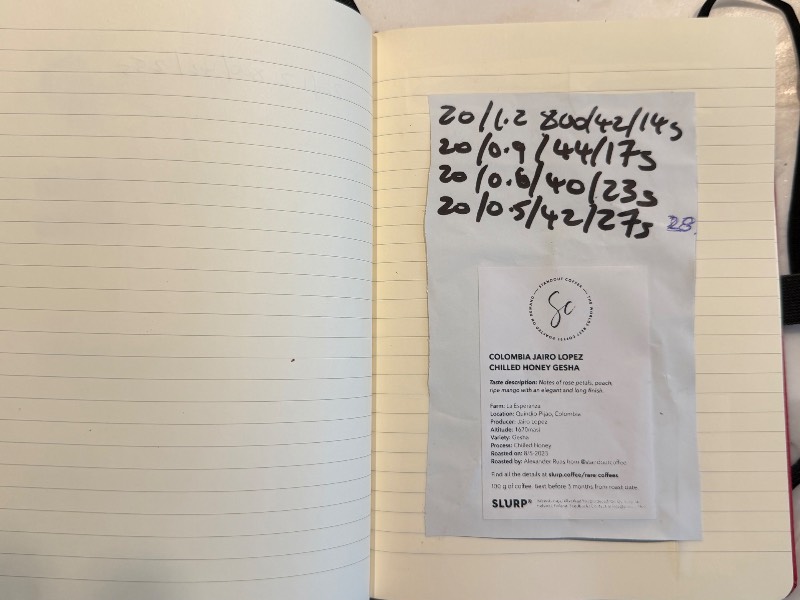 20/1.2 800/42/14s
20/0.9/44/17s
20/0.6/40/23s
20/0.5/42/27s 28
STANDOUT COFFEE
Sc
COLOMBIA JAIRO LOPEZ
CHILLED HONEY GESHA
Taste description: Notes of rose petals, peach,
ripe mango with an elegant and long finish.
Farm: La Esperanza
Location: Quindio Pijao, Colombia
Producer: Jairo Lopez
Altitude: 1670masl
Variety: Gesha
Process: Chilled Honey
Roasted on: 8/5 2025
Roasted by: Alexander Ruas from @standoutcoffee
Find all the details at slurp.coffee/rare-coffees.
100 g of coffee. Best before 3 months from roast date.
SLURP®